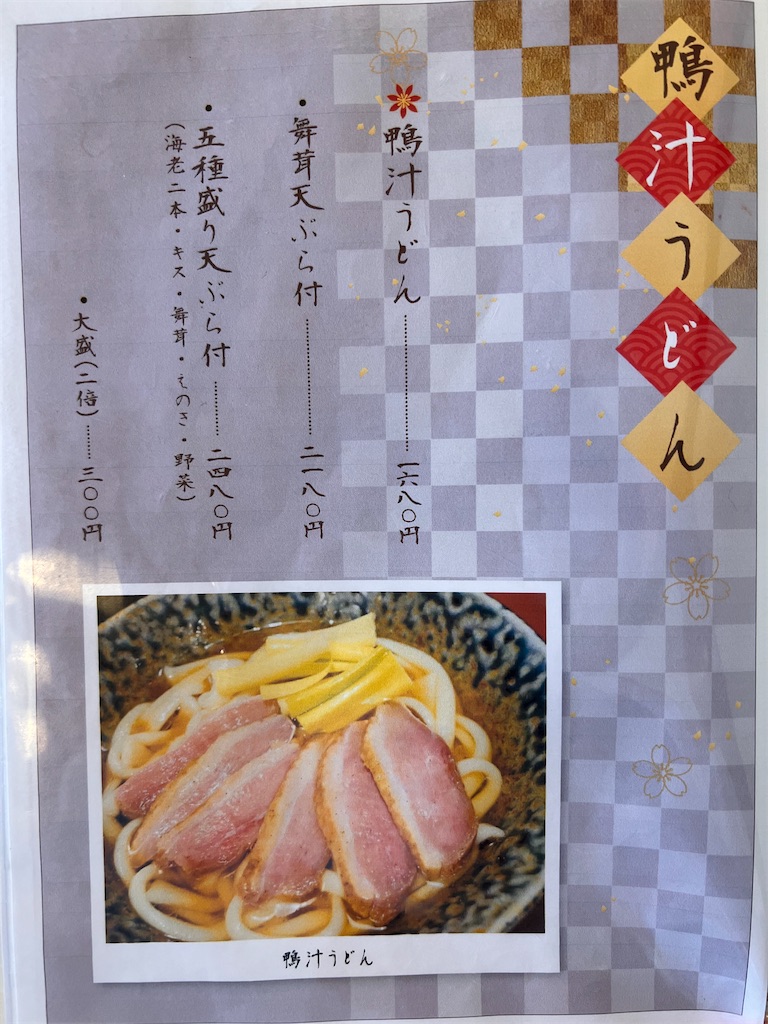 鴨汁うどん
鴨汁うどん………一六八〇円
・舞茸天ぷら付………二一八〇円
・五種盛り天ぷら付………二四八〇円
（海老二本・キス・舞茸・えのき・野菜）
・大盛（二倍）………三〇〇円
鴨汁うどん